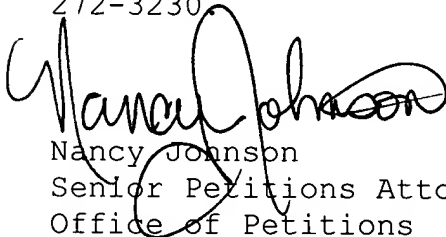 272-3230.
Nancy Johnson
Nancy Johnson
Senior Petitions Atto
Office of Petitions